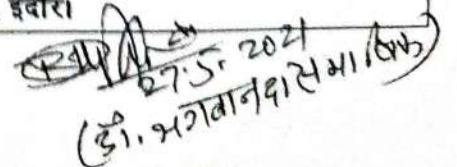 इदारा
27.5.2021
(डॉ. भगवानदास माणिक)